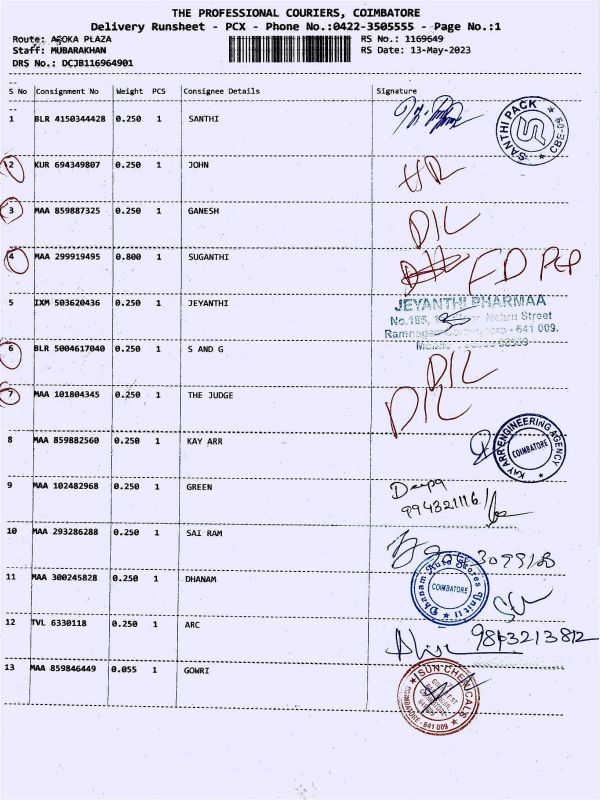 THE PROFESSIONAL COURIERS, COIMBATORE
Delivery Runsheet - PCX - Phone No.:0422-3505555 - Page No.:1
Route: ASOKA PLAZA RS No.: 1169649
Staff: MUBARAKHAN RS Date: 13-May-2023
DRS No.: DCJB116964901
S No Consignment No Weight PCS Consignee Details Signature
1 BLR 4150344428 0.250 1 SANTHI
SANTHI PACK CBE-09
2 KUR 694349807 0.250 1 JOHN
3 MAA 859887325 0.250 1 GANESH D/L
4 MAA 299919495 0.800 1 SUGANTHI
5 IXM 503620436 0.250 1 JEYANTHI JEYANTHI PHARMAA
Nehru Street
- 641 009.
6 BLR 5004617040 0.250 1 S AND G D/L
7 MAA 101804345 0.250 1 THE JUDGE D/L
8 MAA 859882560 0.250 1 KAY ARR KAY ARR ENGINEERING AGENCY COIMBATORE
9 MAA 102482968 0.250 1 GREEN Deepa
994821116
10 MAA 293286288 0.250 1 SAI RAM
11 MAA 300245828 0.250 1 DHANAM Dhanam Auto Stores Unit II COIMBATORE
12 TVL 6330118 0.250 1 ARC 9843213812
13 MAA 859846449 0.055 1 GOWRI SUN CHEMICALS COIMBATORE - 641 009